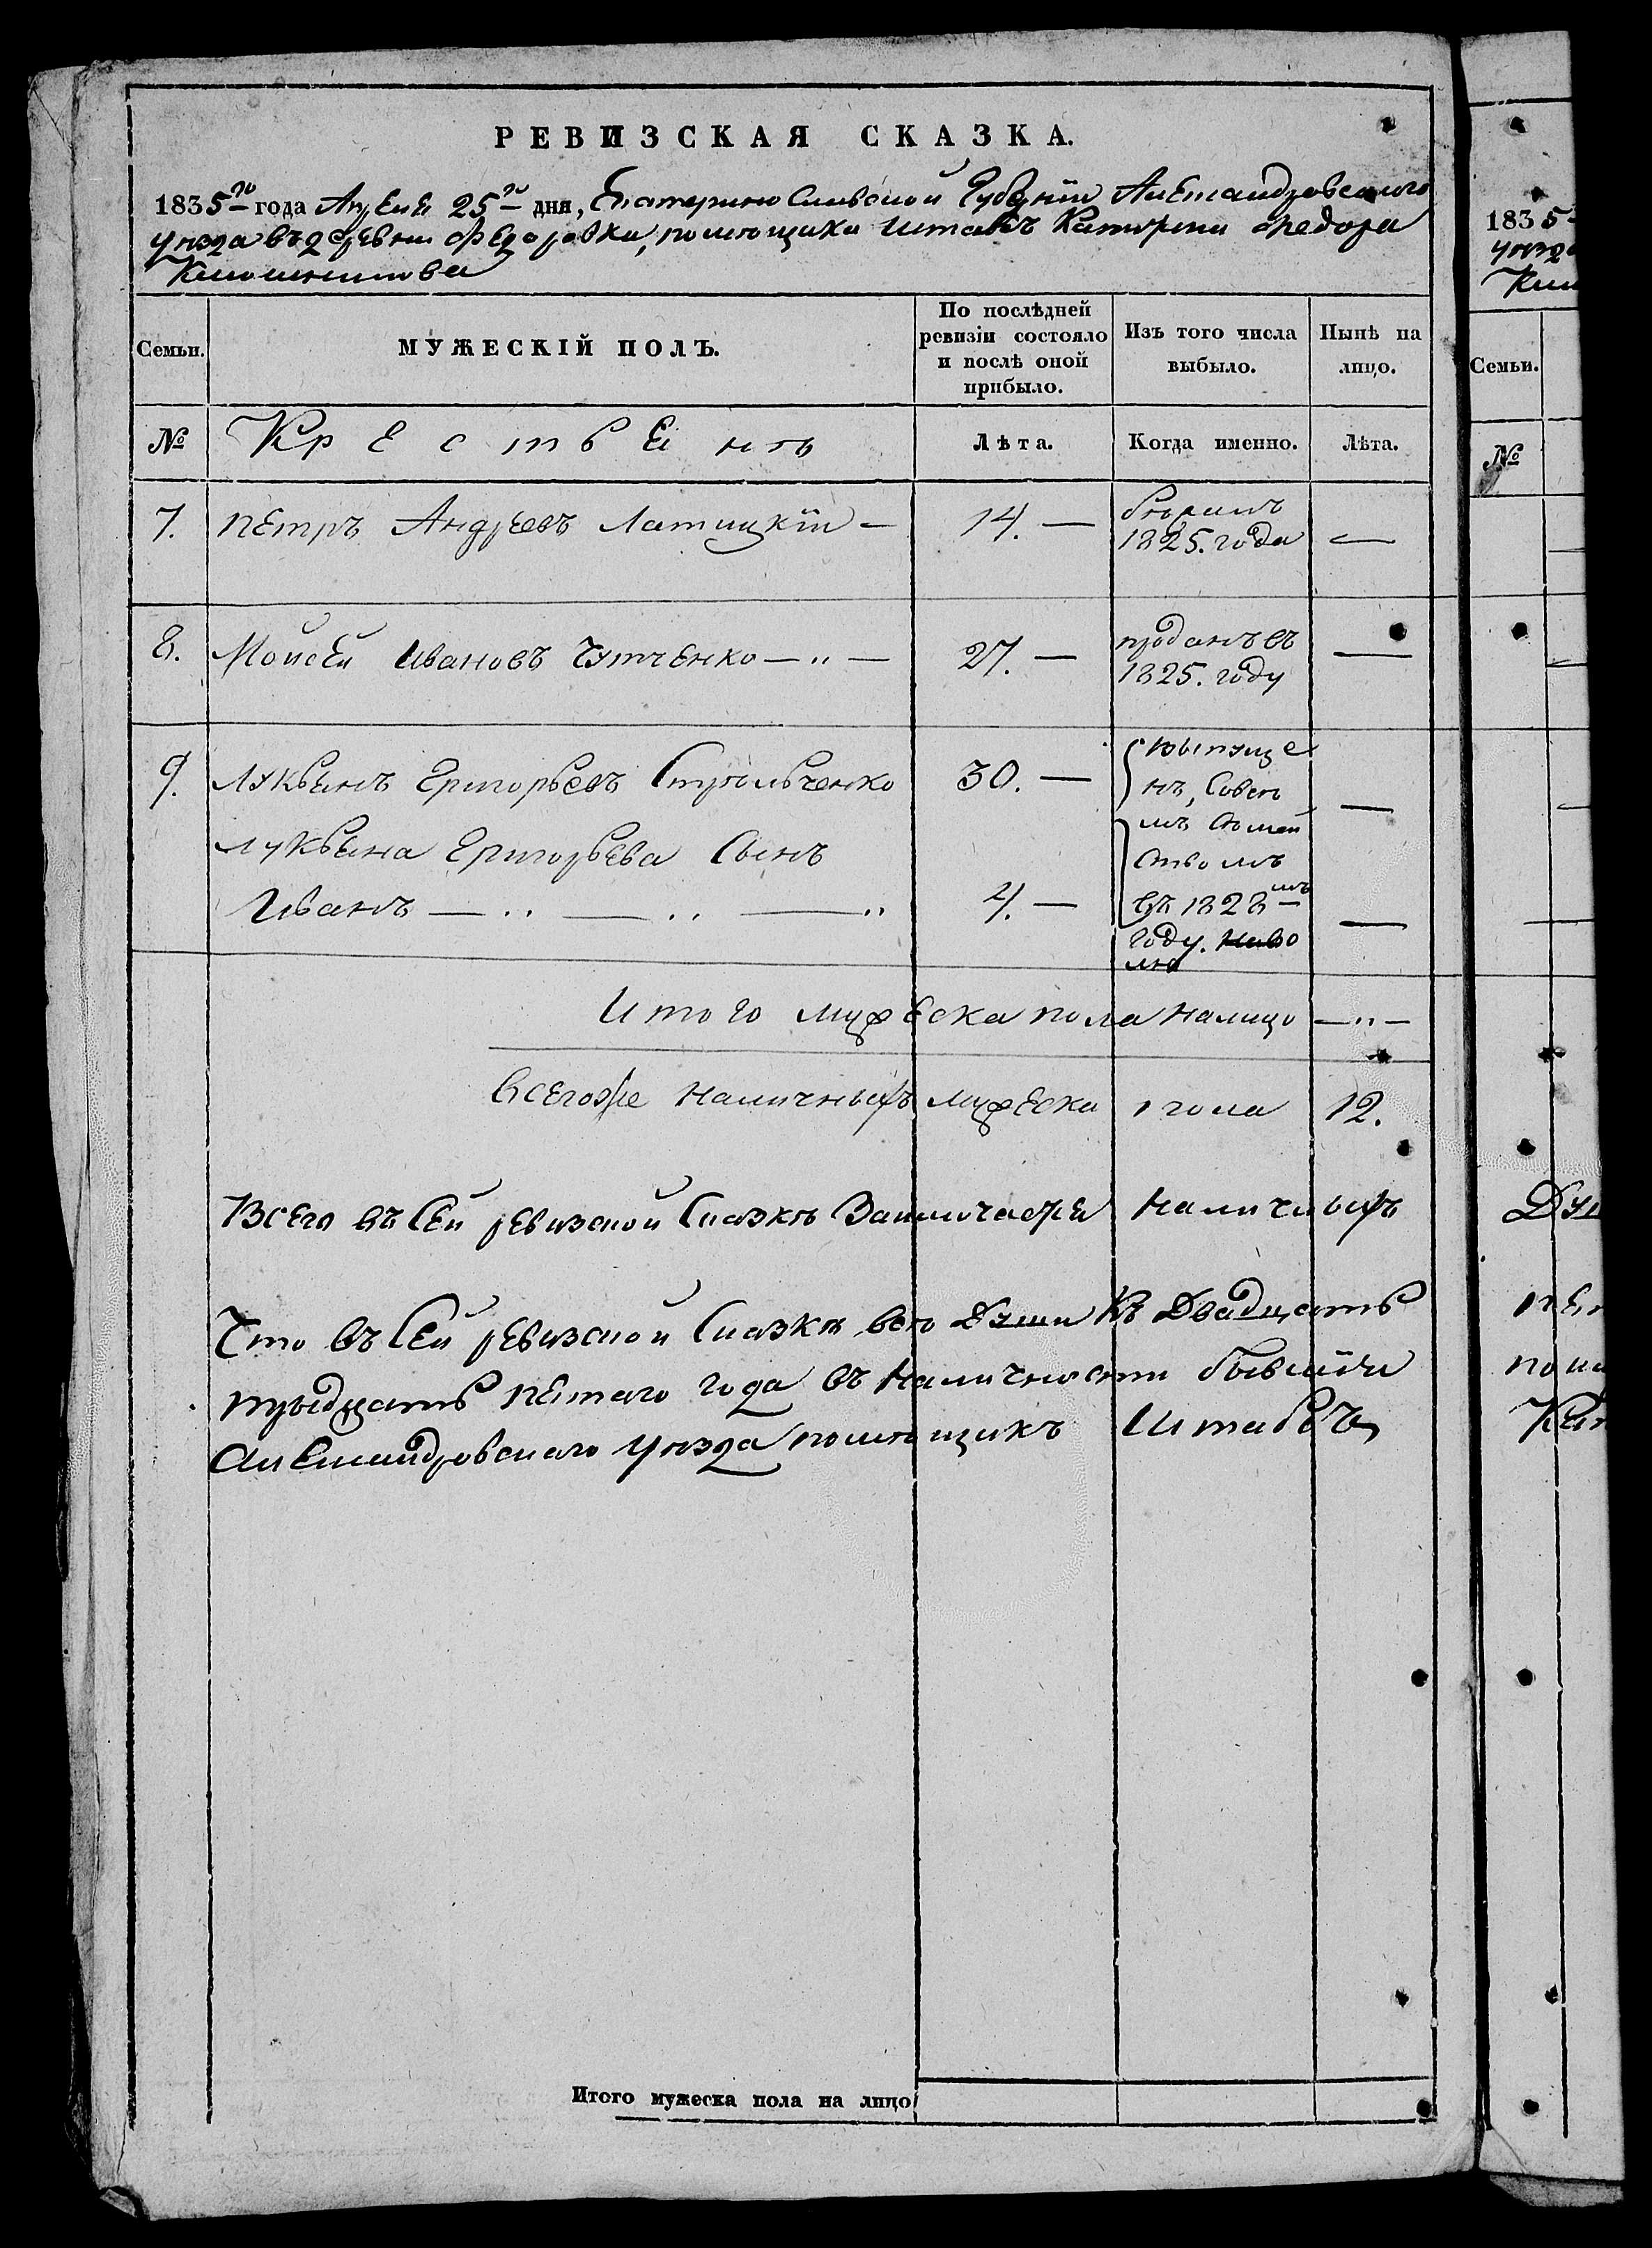 РЕВИЗСКАЯ СКАЗКА.
1835го года Апреля 25го дня, Екатеринославской Губернiи Александровского
уезда въ деревни Федоровки, помещика Штабъ Капитана Федора
МУЖЕСКІЙ ПОЛЪ.
Семьи.
По послѣдней
ревизіи состояло
и послѣ оной
прибыло.
Изъ того числа
выбыло.
Нынѣ на
лицо.
№
Крестьянъ
Лѣта.
Когда именно.
Лѣта.
7. Петръ Андреевъ Латицкiй — 14. —
бѣжалъ
1825. года —
8. Мойсей Ивановъ Чутченко — „ — 27. —
проданъ въ
1825. году —
9. Лукьянъ Григорьевъ Стрѣльченко 30. —
выпуще
нъ, Совсѣ
мъ Семей
ствомъ
Лукьяна Григорьева Сынъ
Иванъ — „ — „ — „ 4. —
въ 1828мъ
году.
Итого мужеска пола налицо — „ —
Всегоже наличныхъ мужеска пола 12.
Всего въ Сей ревизской Сказке Заключаетъ Наличныхъ
Что въ Сей ревизской Сказкѣ все Души Къ
тридцать пятаго года въ Наличности бывшiи
Александровского уезда помещикъ Штабсъ
Итого мужеска пола на лицо
1835
Семьи.
№